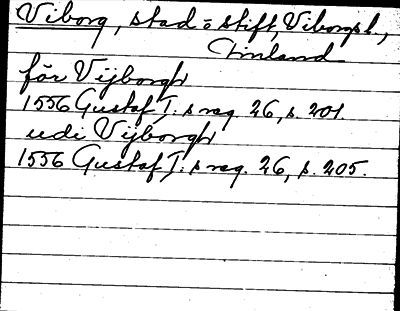 Viborg, stad o stift, Viborgsl.,
Finland
för Vijborgh
1556 Gustaf I:s reg. 26, s. 201
udi Vijborgh
1556 Gustaf I:s reg. 26, s. 205.